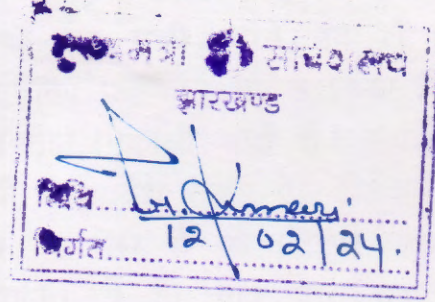 मुख्यमंत्री सचिवालय
झारखण्ड
तिथि........ Kumari
निर्गत........ 12/02/24.